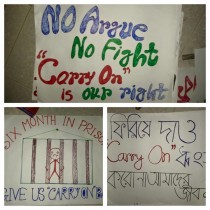 NO Argue
No Fight
"Carry On"
is our right
SIX MONTH IN PRISON
GIVE US "CARRY ON"
ফিরিয়ে দাও
"Carry On"
করো না আমাদের